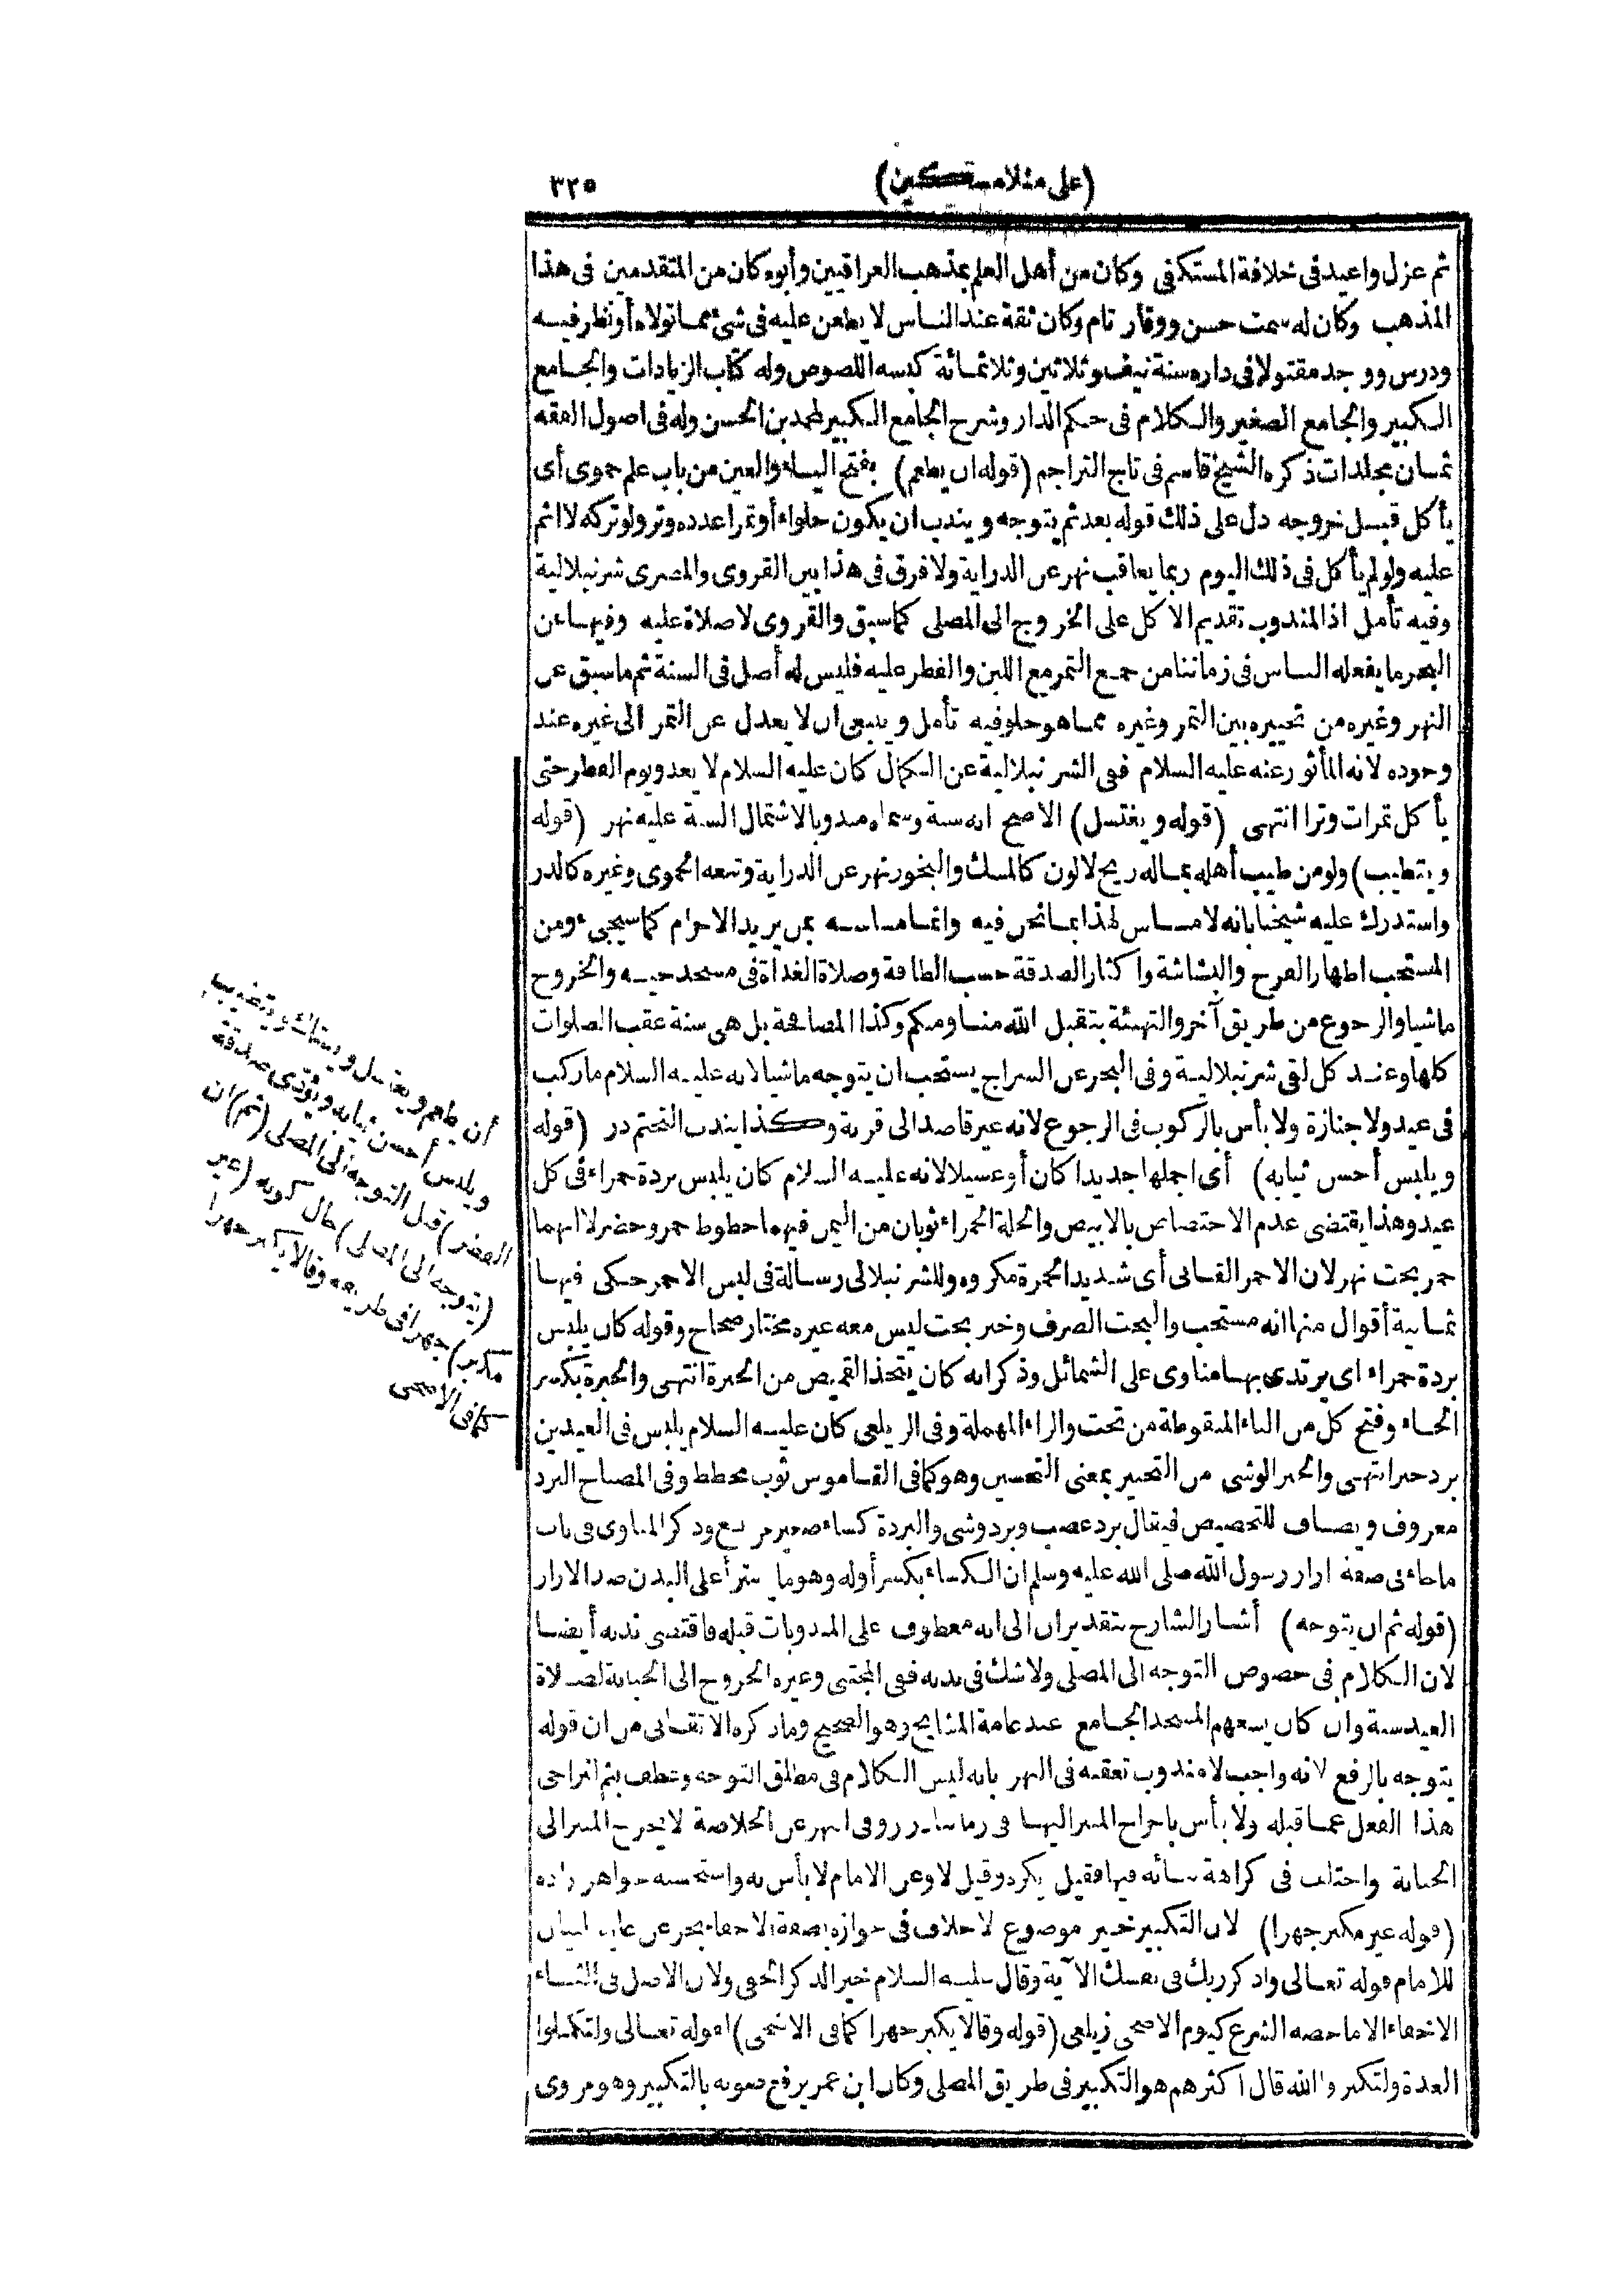 (على منلا مسكين)
٣٢٥
ثم عزل واعيد فى خلافة المستكفى وكان من أهل العلم بمذهب العراقيين وأبوه كان من المتقدمين فى هذا
المذهب وكان له سمت حسن ووقار تام وكان ثقة عند الناس لا يطعن عليه فى شئ مما تولاه أو نظر فيه
ودرس ووجد مقتولا فى داره سنة نيف وثلاثين وثلاثمائة كبسه اللصوص وله كتاب الزيادات والجامع
الكبير والجامع الصغير والكلام فى حكم الدار وشرح الجامع الكبير لمحمد بن الحسن وله فى اصول الفقه
ثمان مجلدات ذكره الشيخ قاسم فى تاج التراجم (قوله ان يطعم) بفتح الياء والعين من باب علم حموى أى
يأكل قبل خروجه دل على ذلك قوله بعد ثم يتوجه ويندب ان يكون حلواء أو تمرا عدده وتر ولو تركه لا اثم
عليه ولو لم يأكل فى ذلك اليوم ربما يعاقب نهر عن الدراية ولا فرق فى هذا بين القروى والمصرى شرنبلالية
وفيه تأمل اذ المندوب تقديم الاكل على الخروج الى المصلى كما سبق والقروى لا صلاة عليه وفيها عن
البحر ما يفعله الناس فى زماننا من جمع التمر مع اللبن والفطر عليه فليس له أصل فى السنة ثم ما سبق عن
النهر وغيره من تخييره بين التمر وغيره مما هو حلو فيه تأمل وينبغى ان لا يعدل عن التمر الى غيره عند
وجوده لانه المأثور عنه عليه السلام ففى الشرنبلالية عن الكمال كان عليه السلام لا يغدو يوم الفطر حتى
يأكل تمرات وترا انتهى (قوله ويغتسل) الاصح انه سنة وسماه مندوبا لاشتمال السنة عليه نهر (قوله
ويتطيب) ولو من طيب أهله بماله ريح لا لون كالمسك والبخور نهر عن الدراية وتبعه الحموى وغيره كالدر
واستدرك عليه شيخنا بانه لا مساس لهذا بما نحن فيه وانما مساسه بمن يريد الاحرام كما سيجىء ومن
المستحب اظهار الفرح والبشاشة واكثار الصدقة حسب الطاقة وصلاة الغداة فى مسجد حيه والخروج
ماشيا والرجوع من طريق آخر والتهنئة بتقبل الله منا ومنكم وكذا المصافحة بل هى سنة عقب الصلوات
كلها وعند كل لقى شرنبلالية وفى البحر عن السراج يستحب ان يتوجه ماشيا لانه عليه السلام ما ركب
فى عيد ولا جنازة ولا بأس بالركوب فى الرجوع لانه غير قاصد الى قربة وكذا يندب التختم در (قوله
ويلبس أحسن ثيابه) أى اجملها جديدا كان أو غسيلا لانه عليه السلام كان يلبس بردة حمراء فى كل
عيد وهذا يقتضى عدم الاختصاص بالابيض والحلة الحمراء ثوبان من اليمن فيهما خطوط حمر وخضر لا انهما
حمر بحت نهر لان الاحمر القانى أى شديد الحمرة مكروه وللشرنبلالى رسالة فى لبس الاحمر حكى فيها
ثمانية أقوال منها انه مستحب والبحت الصرف وخبز بحت ليس معه غيره مختار صحاح وقوله كان يلبس
بردة حمراء اى يرتدى بها مناوى على الشمائل وذكر انه كان يتخذ القميص من الحبرة انتهى والحبرة بكسر
الحاء وفتح كل من الباء المنقوطة من تحت والراء المهملة وفى الزيلعى كان عليه السلام يلبس فى العيدين
برد حبر انتهى والحبر الوشى من التحبير بمعنى التحسين وهو كما فى القاموس ثوب مخطط وفى المصباح البرد
معروف ويضاف للتخصيص فيقال برد عصب وبرد وشى والبردة كساء صغير مربع وذكر المناوى فى باب
ما جاء فى صفة ازار رسول الله صلى الله عليه وسلم ان الكساء بكسر أوله وهو ما يستر أعلى البدن ضد الازار
(قوله ثم ان يتوجه) أشار الشارح بتقدير ان الى انه معطوف على المندوبات قبله فاقتضى ندبه أيضا
لان الكلام فى خصوص التوجه الى المصلى ولا شك فى ندبه ففى المجتبى وغيره الخروج الى الجبانة لصلاة
العيد سنة وان كان يسعهم المسجد الجامع عند عامة المشايخ وهو الصحيح وما ذكره الاتقانى من ان قوله
يتوجه بالرفع لانه واجب لا مندوب تعقبه فى النهر بانه ليس الكلام فى مطلق التوجه وعطف بثم لتراخى
هذا الفعل عما قبله ولا بأس باخراج المنبر اليها فى زماننا درر وفى النهر عن الخلاصة لا يخرج المنبر الى
الجبانة واختلف فى كراهة بنائه فيها فقيل يكره وقيل لا وعن الامام لا بأس به واستحسنه خواهر زاده
(قوله غير مكبر جهرا) لان التكبير خير موضوع لا خلاف فى جوازه بصفة الاخفاء بحر عن غاية البيان
للامام قوله تعالى واذكر ربك فى نفسك الآية وقال عليه السلام خير الذكر الخفى ولان الاصل فى الثناء
الاخفاء الا ما خصه الشرع كيوم الاضحى زيلعى (قوله وقالا يكبر جهرا كما فى الاضحى) لقوله تعالى ولتكملوا
العدة ولتكبروا الله قال اكثرهم هو التكبير فى طريق المصلى وكان ابن عمر يرفع صوته بالتكبير وهو مروى
أن يطعم ويغتسل ويستاك ويتطيب
ويلبس أحسن ثيابه ويؤدى صدقة
الفطر) قبل التوجه الى المصلى (ثم) ان
(يتوجه الى المصلى) حال كونه (غير
مكبر) جهرا فى طريقه وقالا يكبر جهرا
كما فى الاضحى